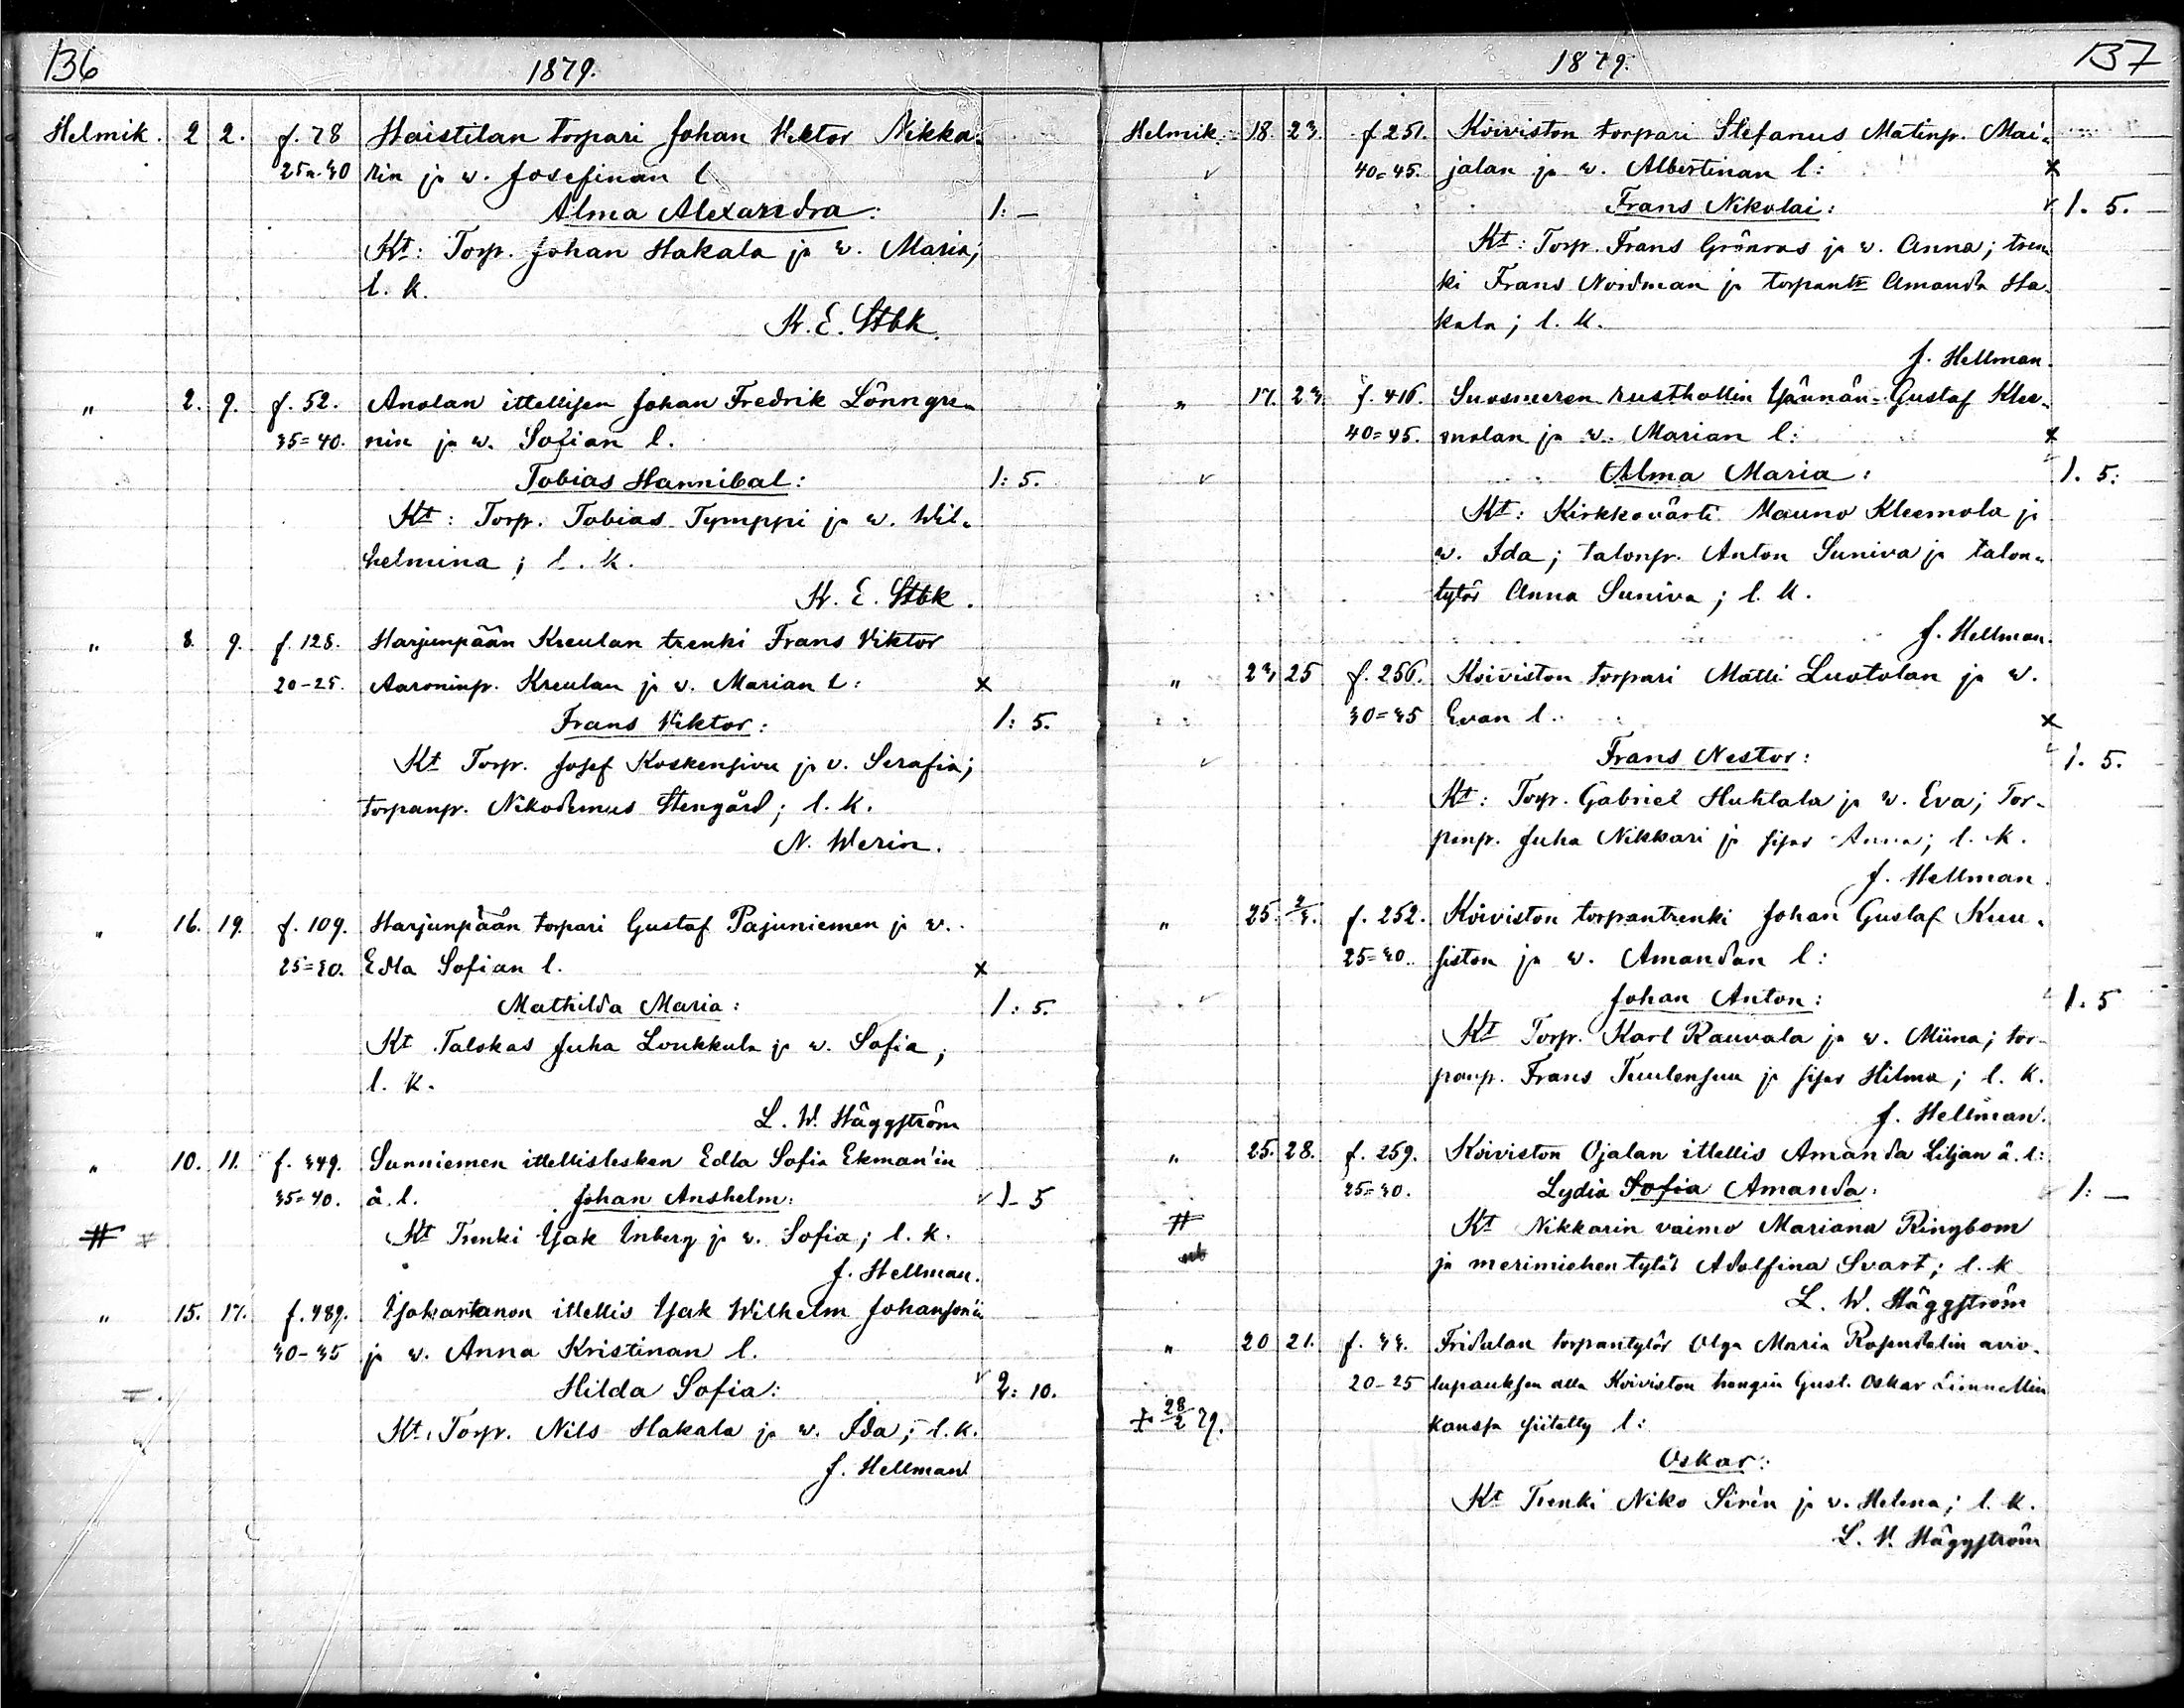 136
1879.
Helmik. 2 2. f. 78 Haistilan torpari Johan Viktor Nikka-
25 n. 30 rin ja w. Josefinan l
Alma Alexandra: 1: —
Kt: Torp. Johan Hakala ja w. Maria;
l. k.
K. E. Stbk.
" 2. 9. f. 52. Anolan ittellisen Johan Fredrik Lönngre-
35=40. nin ja w. Sofian l.
Tobias Hannibal: 1: 5.
Kt: Torp. Tobias Tymppi ja w. Wil-
helmina; l. k.
K. E. Stbk.
" 8. 9. f. 128. Harjunpään Kreulan trenki Frans Viktor
20-25. Aaroninp. Kreulan ja v. Marian l: x
Frans Viktor: 1: 5.
Kt Torp. Josef Koskensivu ja v. Serafia;
torpanp. Nikodemus Stengård; l. k.
N. Werin.
" 16. 19. f. 109. Harjunpään torpari Gustaf Pajuniemen ja v.
25=30. Edla Sofian l. x
Mathilda Maria: 1: 5.
Kt Talokas Juha Loukkula ja w. Sofia;
l. k.
L. W. Häggström
" 10. 11. f. 349. Sunniemen ittellislesken Edla Sofia Ekman'in
35=40. ä. l. Johan Anshelm: 1- 5
# Kt Trenki Isak Inberg ja w. Sofia; l. k.
J. Hellman.
" 15. 17. f. 489. Isokartanon ittellis Isak Wilhelm Johanson'in
30-35 ja w. Anna Kristinan l.
Hilda Sofia: 2: 10.
Kt. Torp. Nils Hakala ja w. Ida; l. k.
J. Hellman
137
1879.
Helmik. 18. 23. f. 251. Koiviston torpari Stefanus Matinp. Mai-
40=45. jalan ja w. Albertinan l: x
Frans Nikolai: 1. 5.
Kt: Torp. Frans Grönros ja w. Anna; tren-
ki Frans Nordman ja torpantr Amanda Ha-
kala; l. k.
J. Hellman.
" 17. 23. f. 416. Suosmeren rusthollin Isännän Gustaf Klee-
40=45. molan ja w. Marian l: x
Alma Maria: 1. 5:
Kt: Kirkkovärti Mauno Kleemola ja
w. Ida; talonp. Anton Suniva ja talon-
tytär Anna Suniva; l. k.
J. Hellman.
" 23 25 f. 256. Koiviston torpari Matti Luotolan ja w.
30=35 Evan l. x
Frans Nestor: 1. 5.
Kt: Torp. Gabriel Huhtala ja w. Eva; Tor-
panp. Juha Nikkari ja sisar Anna; l. k.
J. Hellman.
" 25. 2/3. f. 252. Koiviston torpantrenki Johan Gustaf Kuu-
25=30. siston ja w. Amandan l:
Johan Anton: 1. 5
Kt Torp. Karl Rauvala ja w. Miina; tor-
panp. Frans Tuulensuu ja sisar Hilma; l. k.
J. Hellman.
" 25. 28. f. 259. Koiviston Ojalan ittellis Amanda Liljan ä. l:
25=30. Lydia Sofia Amanda: 1: —
# Kt Nikkarin vaimo Mariana Ringbom
ja merimiehen tytär Adolfina Svart; l. k
L. W. Häggström
" 20 21. f. 33. Fridulan torpantytär Olga Maria Rosendalin avio-
20-25 lupauksen alla Koiviston rengin Gust. Oskar Limnellin
+ 28/2 79. kanssa siitetty l:
Oskar:
Kt Trenki Niko Sirén ja v. Helena; l. k.
L. W. Häggström